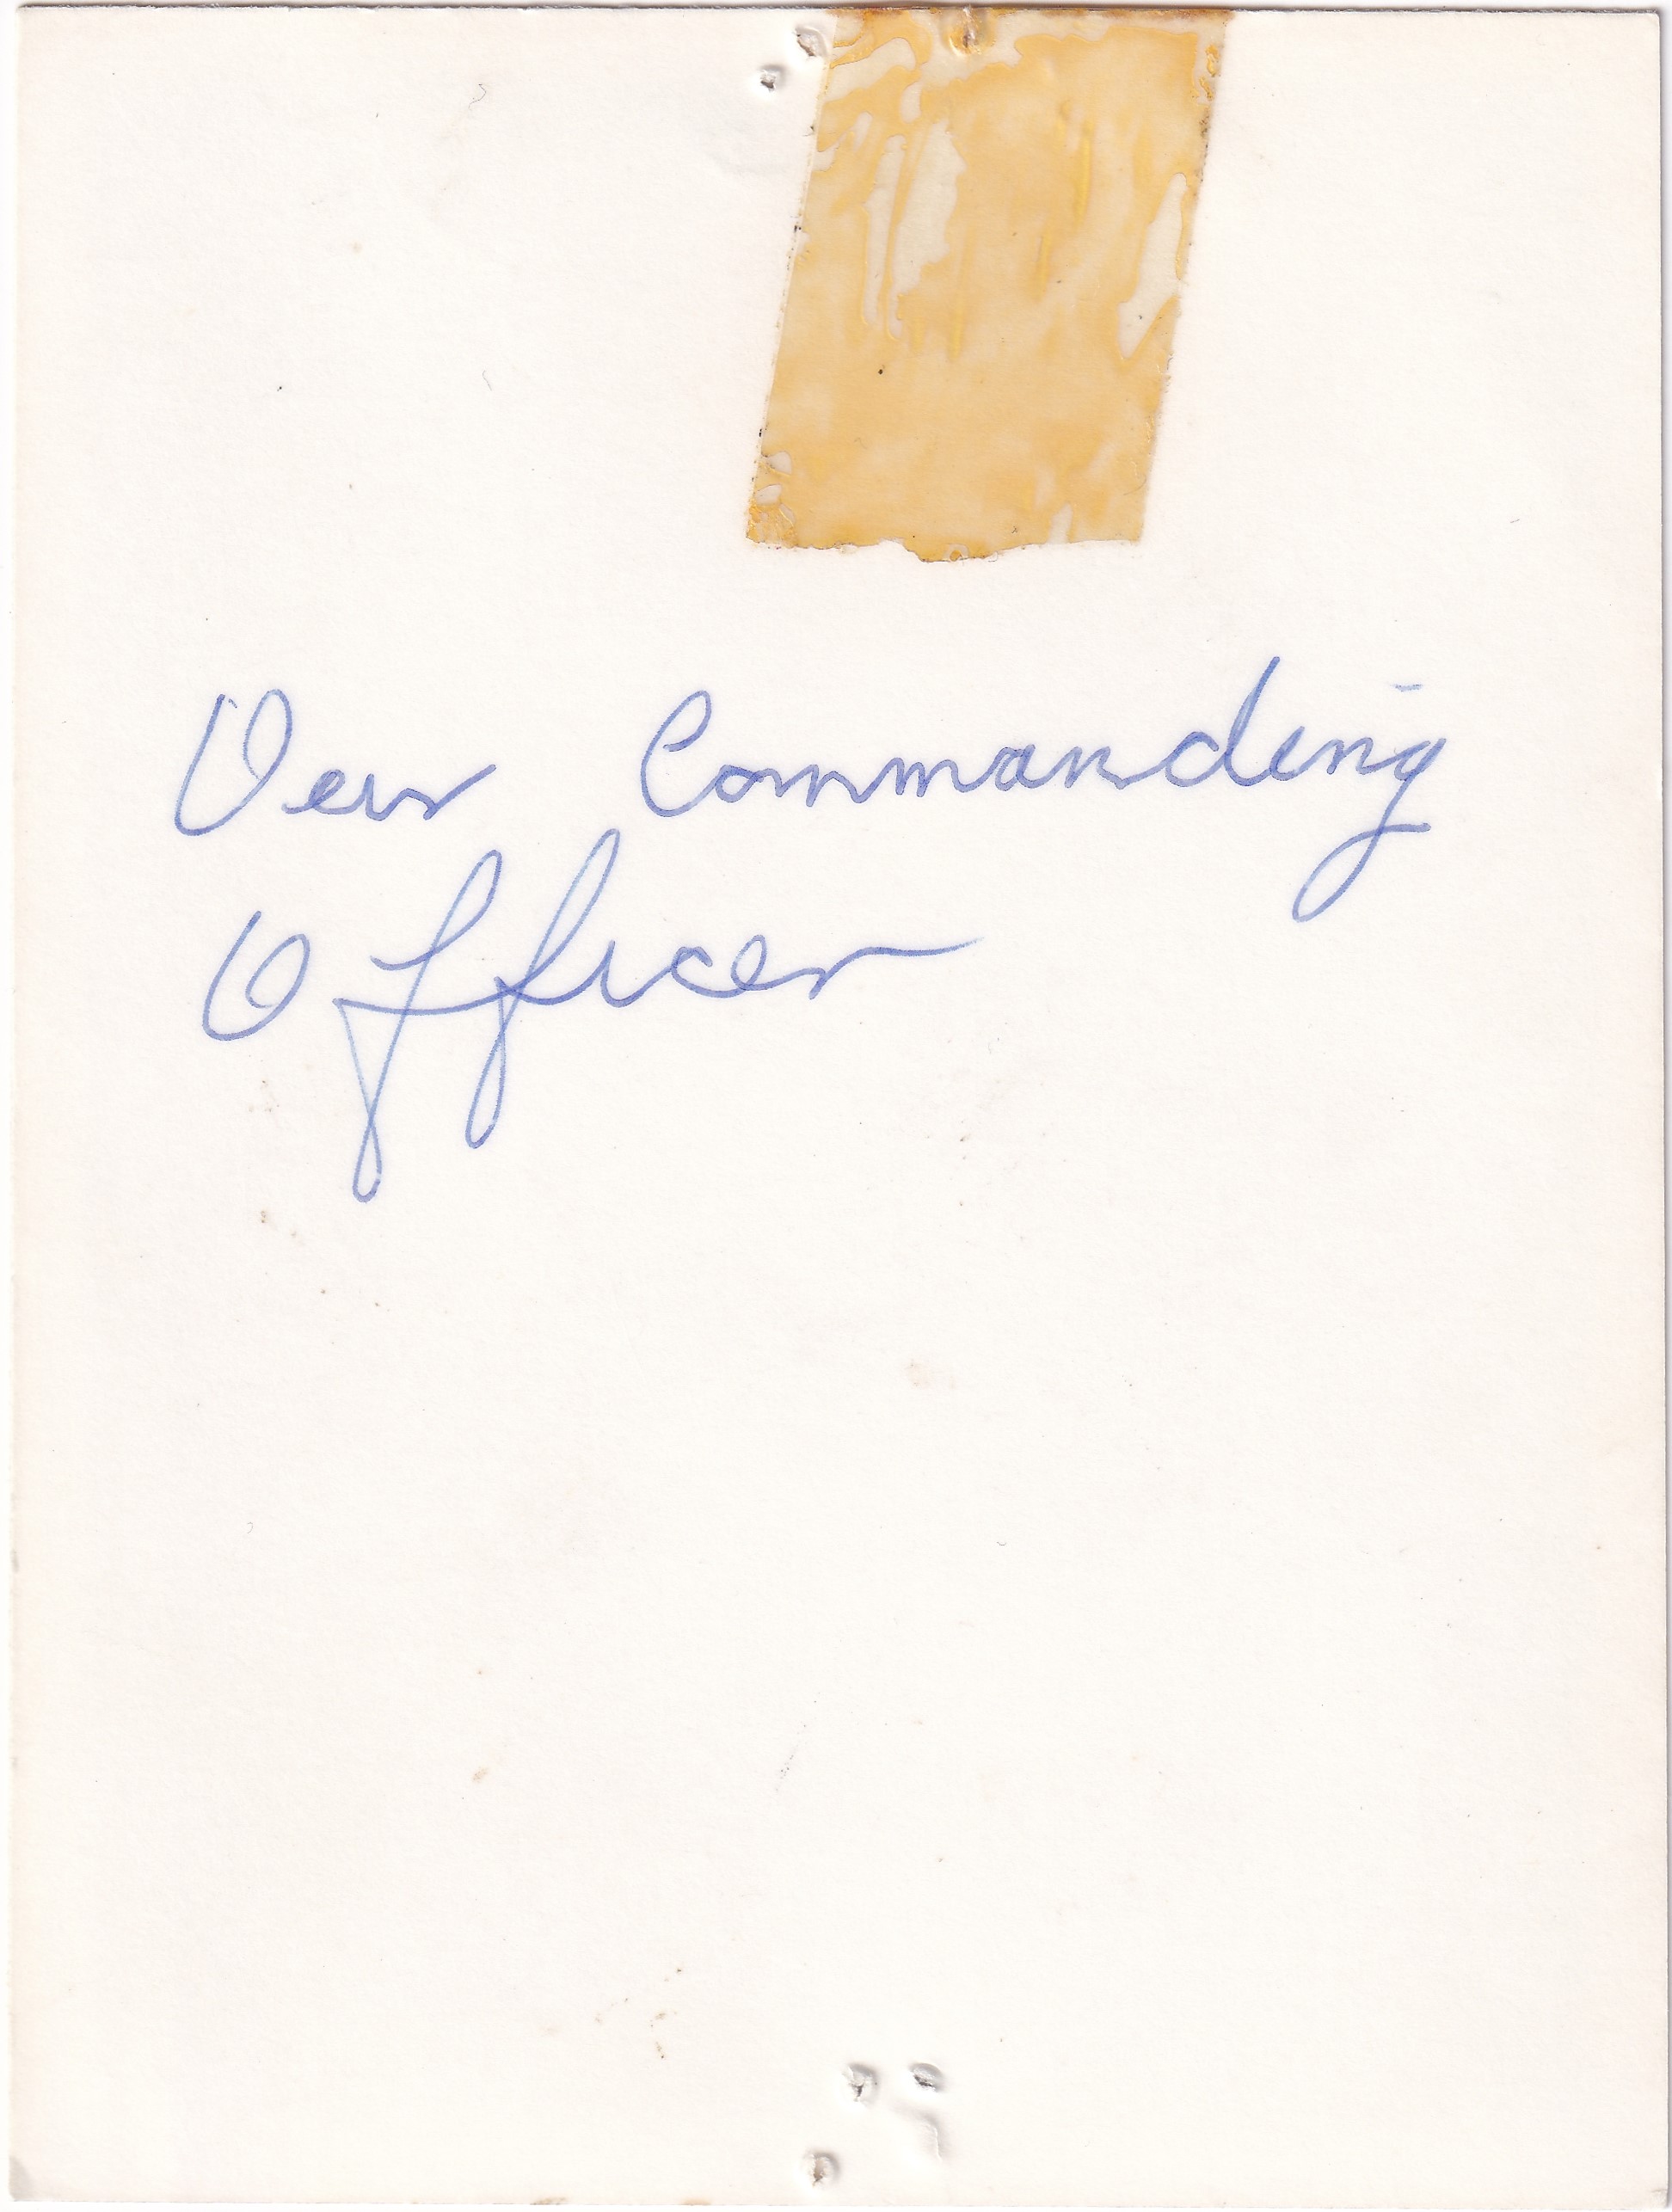 Commanding
Officer